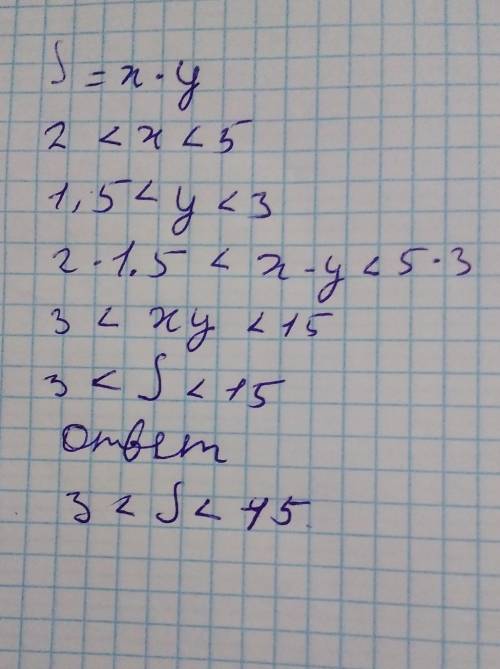 S = x · y
2 < x < 5
1,5 < y < 3
2 · 1.5 < x · y < 5 · 3
3 < xy < 15
3 < S < 15
Ответ
3 < S < 15